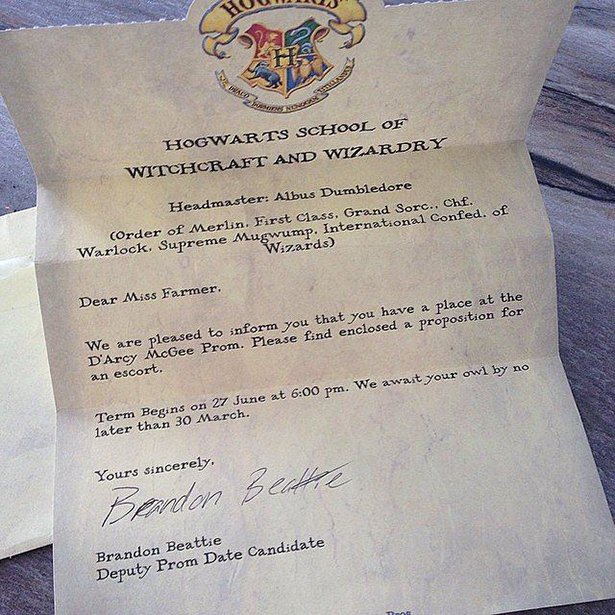 HOGWARTS
H
DRACO DORMIENS NUNQUAM TITILLANDUS
HOGWARTS SCHOOL OF
WITCHCRAFT AND WIZARDRY
Headmaster: Albus Dumbledore
(Order of Merlin, First Class, Grand Sorc., Chf.
Warlock, Supreme Mugwump, International Confed. of
Wizards)
Dear Miss Farmer,
We are pleased to inform you that you have a place at the
D'Arcy McGee Prom. Please find enclosed a proposition for
an escort.
Term Begins on 27 June at 6:00 pm. We await your owl by no
later than 30 March.
Yours sincerely,
Brandon Beattie
Brandon Beattie
Deputy Prom Date Candidate